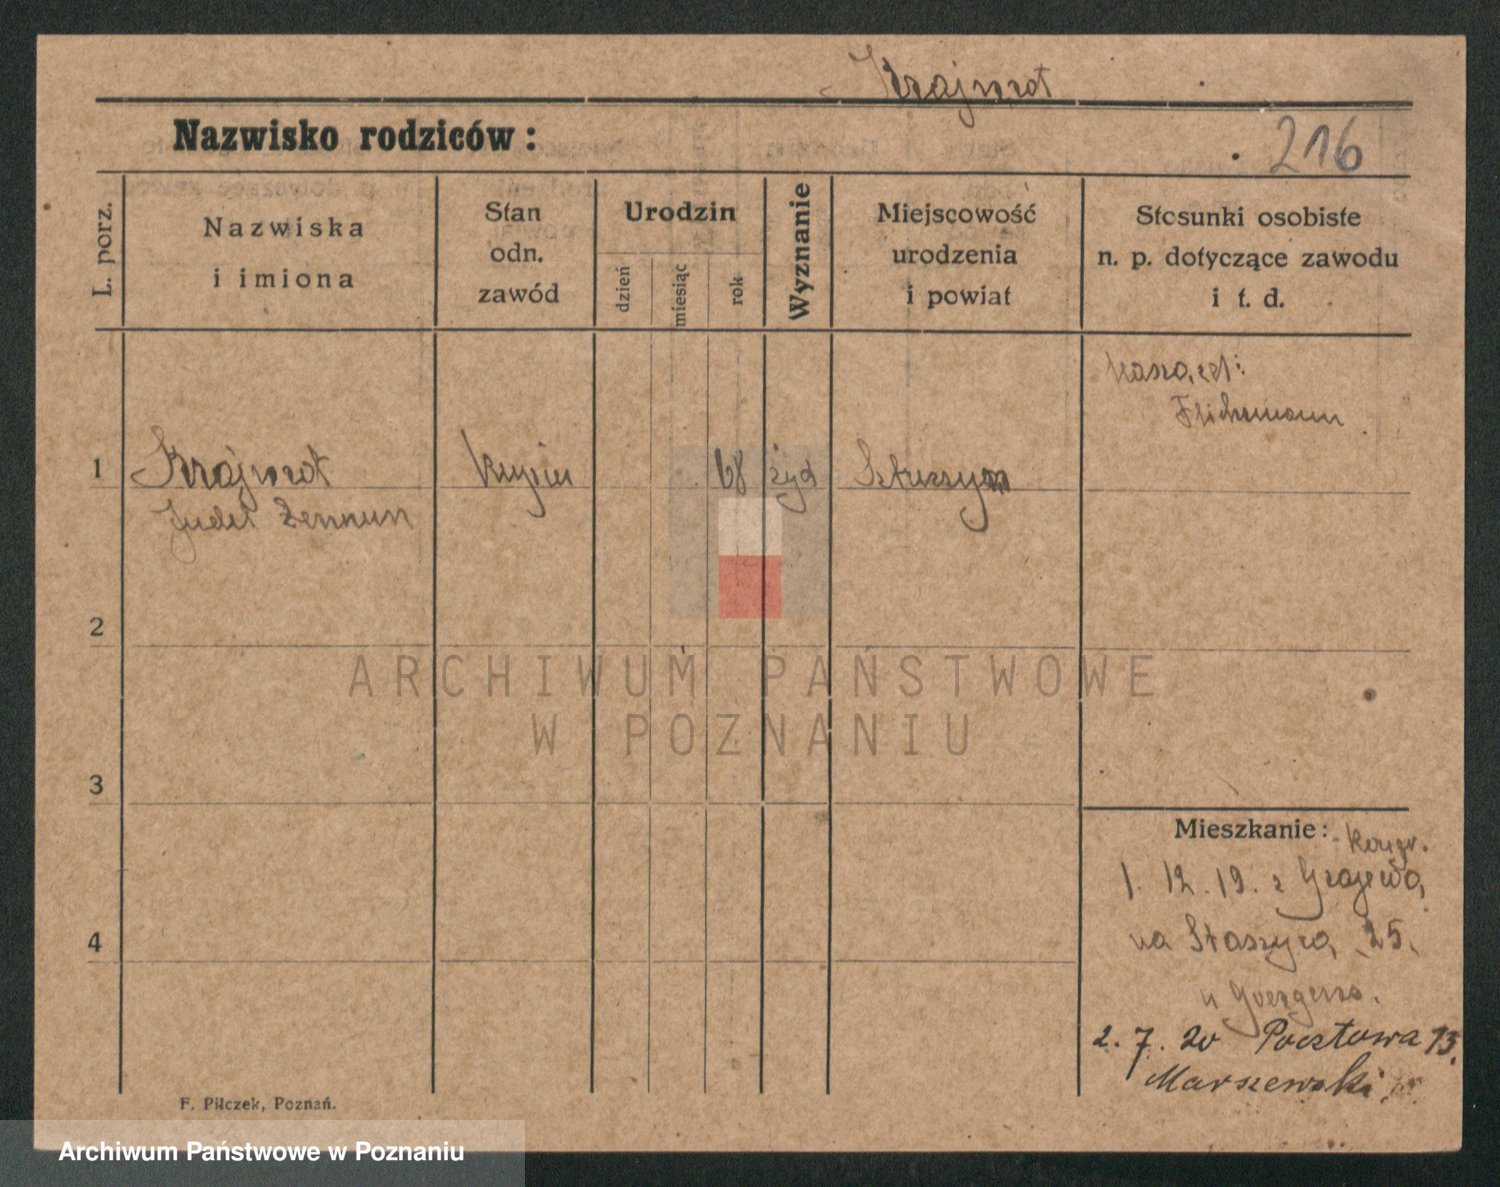 Krajwrot
Nazwisko rodziców:
216
L. porz.
Nazwiska
i imiona
Stan
odn.
zawód
Urodzin
dzień
miesiąc
rok
Wyznanie
Miejscowość
urodzenia
i powiat
Stosunki osobiste
n. p. dotyczące zawodu
i t. d.
1
Krajwrot
kupiec
68
żyd
2
3
4
Mieszkanie:
Kongr.
1. 12. 19. z Grajewa,
na Staszyca, 25.
2. 7. 20 Pocztowa 13.
Marszewski
F. Pilczek, Poznań.
ARCHIWUM PAŃSTWOWE
W POZNANIU
Archiwum Państwowe w Poznaniu